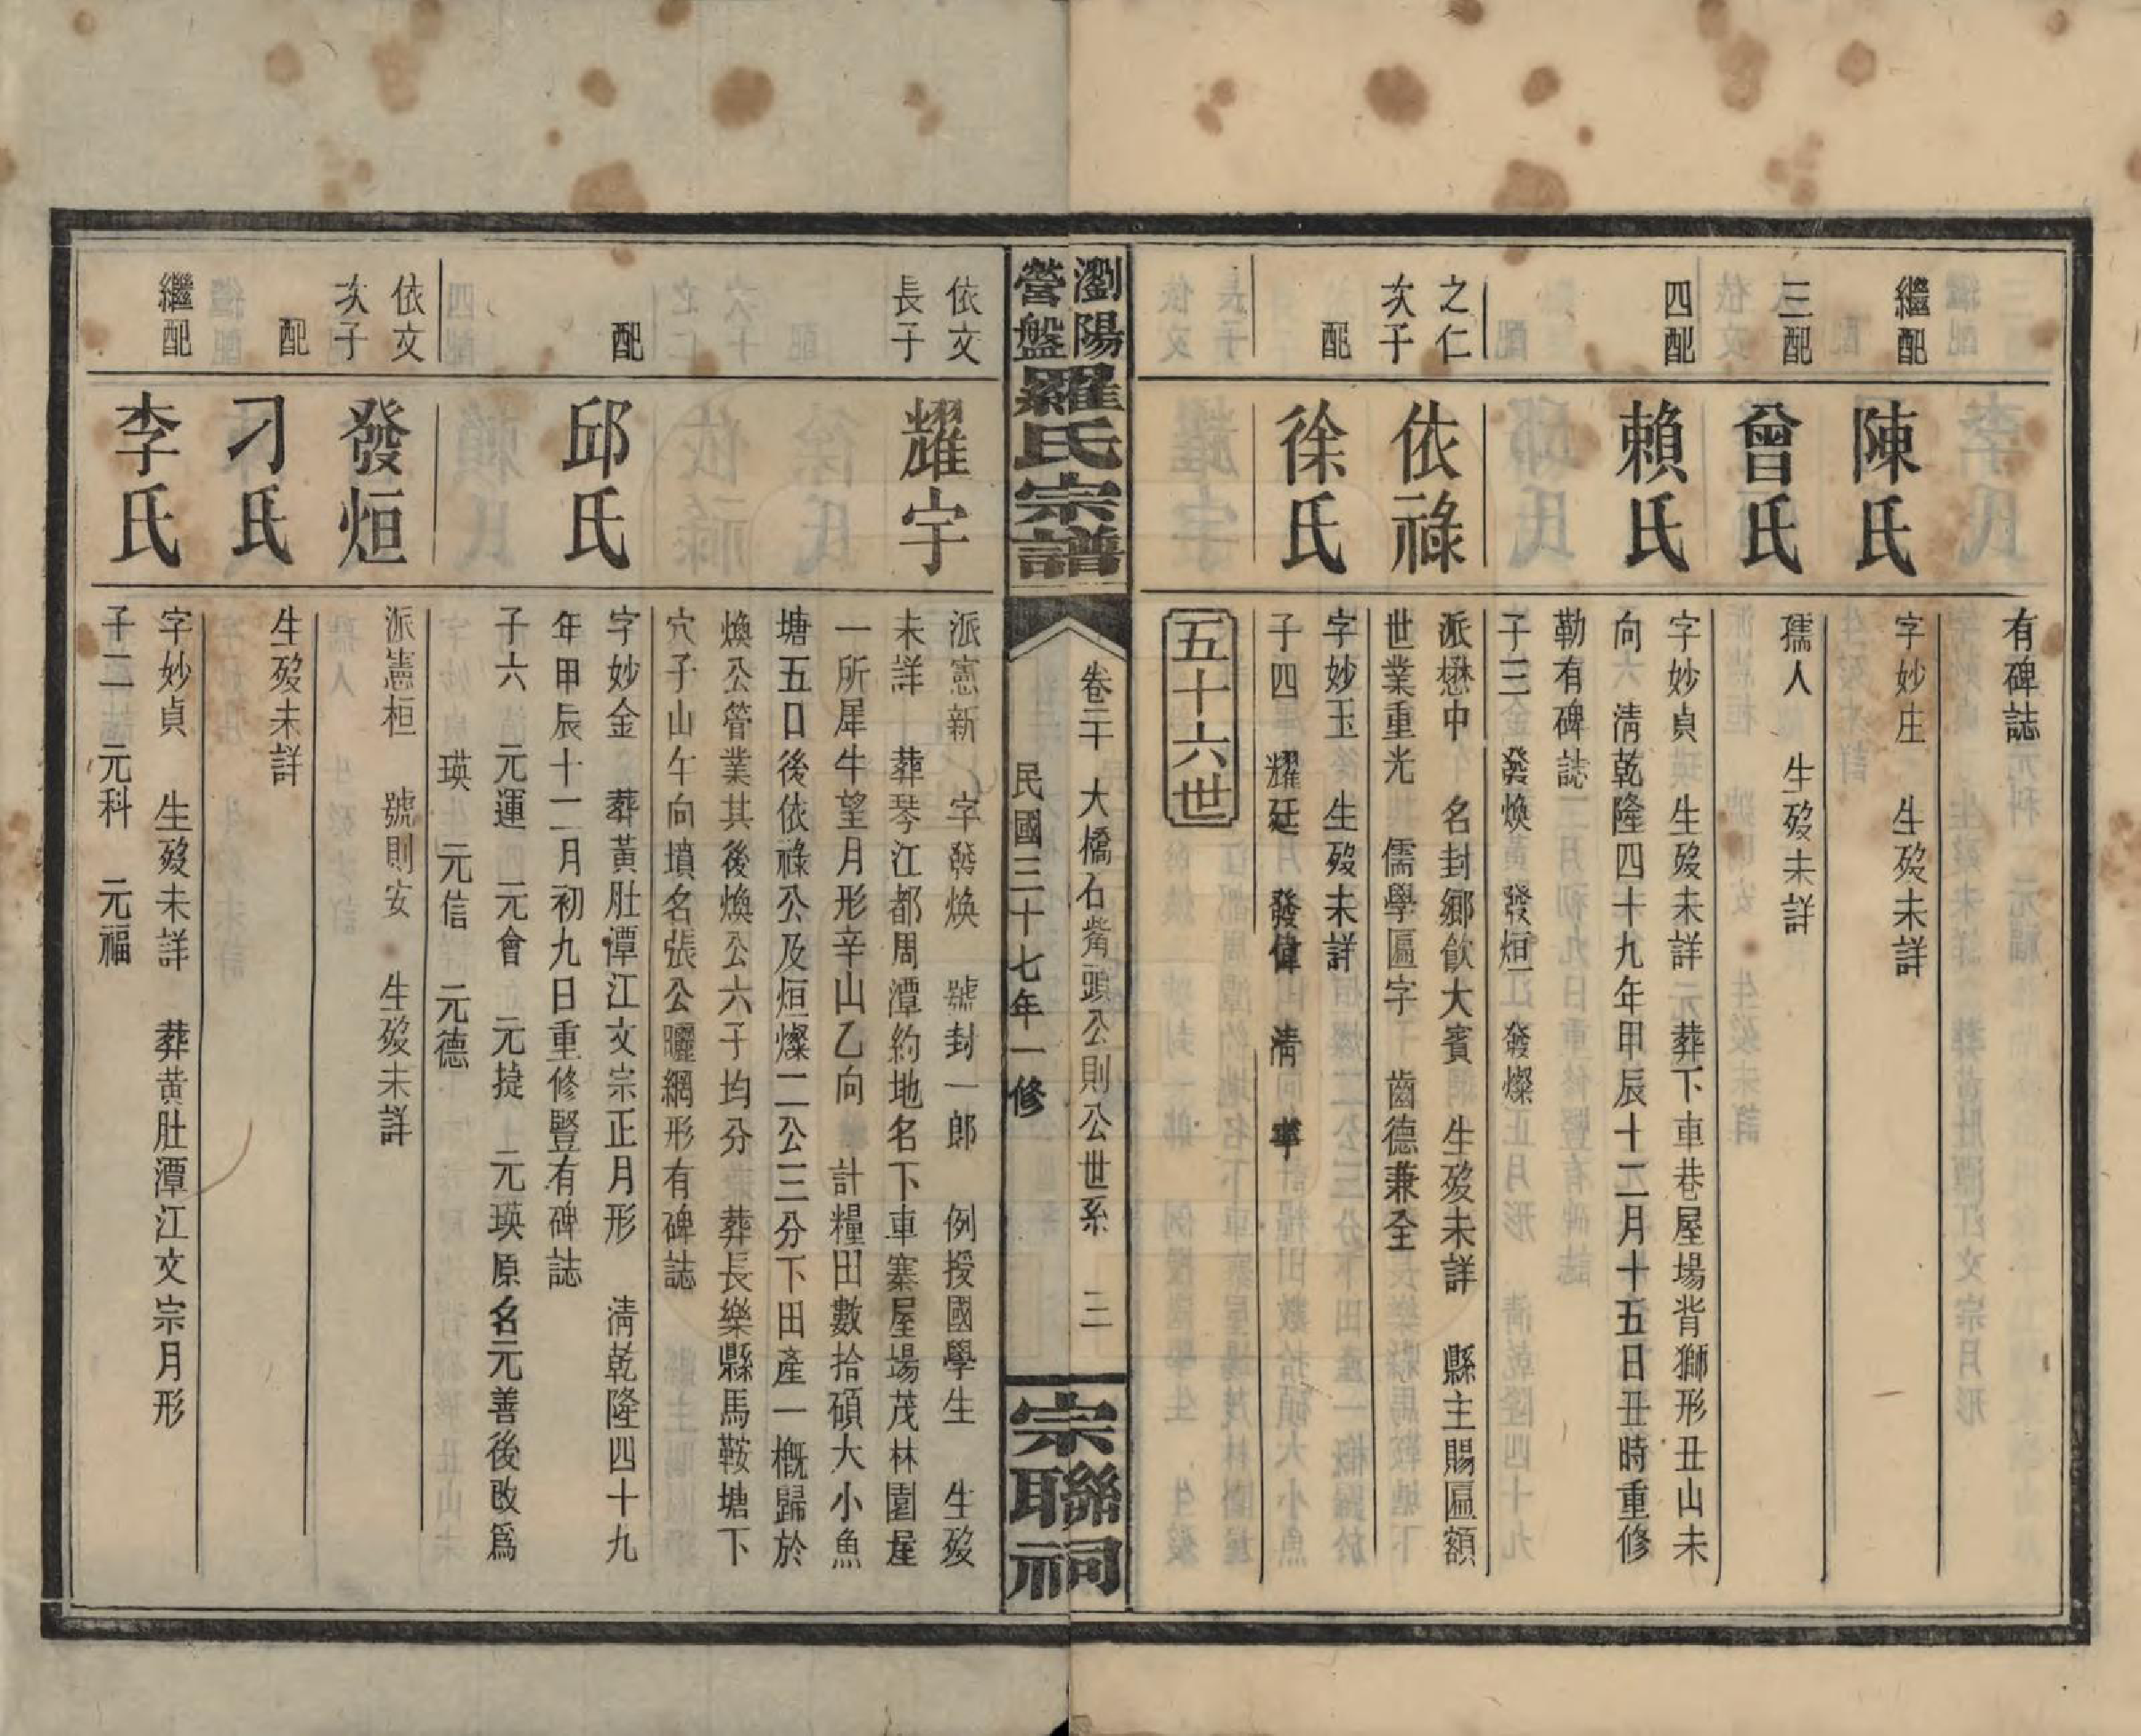 有碑誌
繼配
陳氏
字妙庄 生歿未詳
三配
曾氏
孺人 生歿未詳
四配
賴氏
字妙貞 生歿未詳 葬下車巷屋場背獅形丑山未
向 清乾隆四十九年甲辰十二月十五日丑時重修
勒有碑誌
子三 發煥 發烜 發燦
之仁
次子
依祿
派懋中 名封鄉飲大賓 生歿未詳 縣主賜匾額
世業重光 儒學匾字 齒德兼全
配
徐氏
字妙玉 生歿未詳
子四 耀廷 發偉 清 寧
五十六世
瀏陽
營盤
羅氏宗譜
卷二十 大橋石嘴頭公則公世系 三
民國三十七年一修
宗聯祠
依文
長子
耀宇
派憲新 字發煥 號封一郎 例授國學生 生歿
未詳 葬琴江都周潭約地名下車寨屋場茂林園屋
一所犀牛望月形辛山乙向 計糧田數拾碩大小魚
塘五口後依祿公及烜燦二公三分下田產一概歸於
煥公管業其後煥公六子均分 葬長樂縣馬鞍塘下
穴子山午向墳名張公曬網形有碑誌
配
邱氏
字妙金 葬黃肚潭江文宗正月形 清乾隆四十九
年甲辰十二月初九日重修豎有碑誌
子六 元運 元會 元㨗 元瑛原名元善後改爲
瑛 元信 元德
依文
次子
發烜
派憲桓 號則安 生歿未詳
配
刁氏
生歿未詳
繼配
李氏
字妙貞 生歿未詳 葬黃肚潭江文宗月形
子二 元科 元福